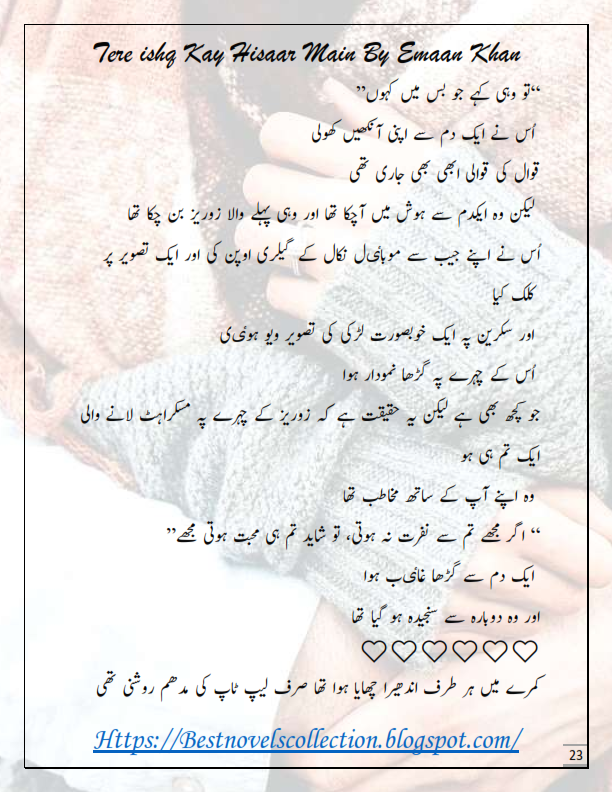 Tere ishq Kay Hisaar Main By Emaan Khan
“تو وہی کہے جو بس میں کہوں”
اُس نے ایک دم سے اپنی آنکھیں کھولی
قوال کی قوالی ابھی بھی جاری تھی
لیکن وہ ایکدم سے ہوش میں آچکا تھا اور وہی پہلے والا زوریز بن چکا تھا
اُس نے اپنے جیب سے موبائیل نکال کے گیلری اوپن کی اور ایک تصویر پر
کلک کیا
اور سکرین پہ ایک خوبصورت لڑکی کی تصویر ویو ہوئیی
اُس کے چہرے پہ گڑھا نمودار ہوا
جو کچھ بھی ہے لیکن یہ حقیقت ہے کہ زوریز کے چہرے پہ مسکراہٹ لانے والی
ایک تم ہی ہو
وہ اپنے آپ کے ساتھ مخاطب تھا
“ اگر مجھے تم سے نفرت نہ ہوتی، تو شاید تم ہی محبت ہوتی مجھے”
ایک دم سے گڑھا غائیب ہوا
اور وہ دوبارہ سے سنجیدہ ہو گیا تھا
♡♡♡♡♡♡
کمرے میں ہر طرف اندھیرا چھایا ہوا تھا صرف لیپ ٹاپ کی مدھم روشنی تھی
Https://Bestnovelscollection.blogspot.com/
23